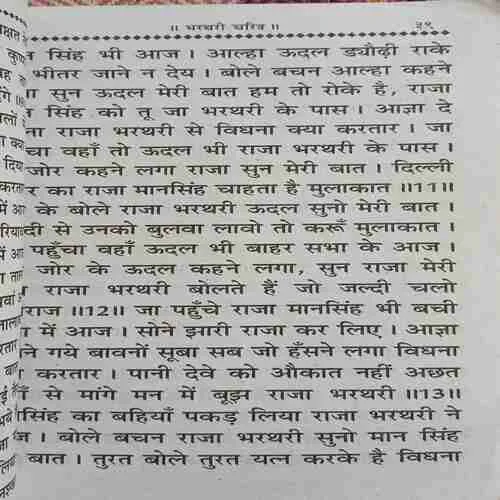 ॥ भरथरी चरित्र ॥ २९
सिंह भी आज । आल्हा ऊदल ड्यौढ़ी राके
भीतर जाने न देय । बोले बचन आल्हा कहने
सुन ऊदल मेरी बात हम तो रोके है, राजा
सिंह को तू जा भरथरी के पास । आज्ञा दे
ना राजा भरथरी से विधना क्या करतार । जा
चा वहाँ तो ऊदल भी राजा भरथरी के पास ।
जोर कहने लगा राजा सुन मेरी बात । दिल्ली
र का राजा मानसिंह चाहता है मुलाकात ॥11॥
के बोले राजा भरथरी ऊदल सुनो मेरी बात ।
दी से उनको बुलवा लावो तो करूँ मुलाकात ।
पहुँचा वहाँ ऊदल भी बाहर सभा के आज ।
जोर के ऊदल कहने लगा, सुन राजा मेरी
राजा भरथरी बोलते हैं जो जल्दी चलो
राज ॥12॥ जा पहुँचे राजा मानसिंह भी बची
में आज । सोने झारी राजा कर लिए । आज्ञा
ने गये बावनों सूबा सब जो हँसने लगा विधना
करतार । पानी देवे को औकात नहीं अछत
से मांगे मन में बूझ राजा भरथरी ॥13॥
सिंह का बहियाँ पकड़ लिया राजा भरथरी ने
ज । बोले बचन राजा भरथरी सुनो मान सिंह
बात । तुरत बोले तुरत यत्न करके है विधना